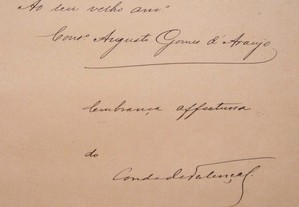 Ao seu velho am.º
Cons.º Augusto Gomes d'Araujo
lembrança affectuosa
do
Conde de Valenças.